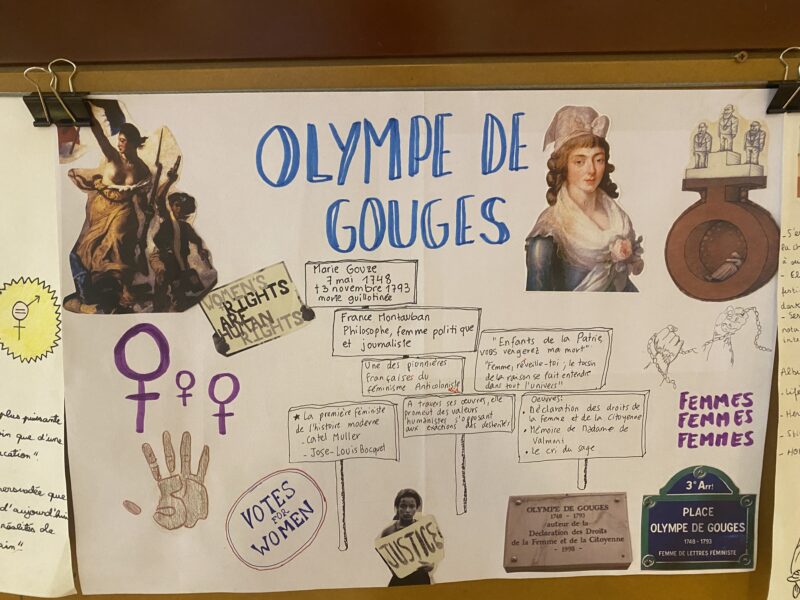 OLYMPE DE
GOUGES
Marie Gouze
7 mai 1748
† 3 novembre 1793
morte guillotinée
WOMEN'S
RIGHTS
ARE
HUMAN
RIGHTS
France Montauban
Philosophe, femme politique
et journaliste
Une des pionnières
françaises du
féminisme Anticoloniste
"Enfants de la Patrie,
vous vengerez ma mort"
"Femme, réveille-toi ; le tocsin
de la raison se fait entendre
dans tout l'univers"
★ La première féministe
de l'histoire moderne
- Catel Muller
- Jose-Louis Bocquet
A travers ses œuvres, elle
promeut des valeurs
humanistes s'opposant
aux exactions des
Oeuvres:
• Déclaration des droits de
la femme et de la Citoyenne
• Mémoire de Madame de
Valmont
• Le cri du sage
FEMMES
FEMMES
FEMMES
VOTES
FOR
WOMEN
JUSTICE
OLYMPE DE GOUGES
1748 - 1793
auteur de la
Déclaration des Droits
de la Femme et de la Citoyenne
- 1998 -
3e Arrt
PLACE
OLYMPE DE GOUGES
1748 - 1793
FEMME DE LETTRES FÉMINISTE
plus puissante
in que d'une
cation"
persuadée que
d'aujourd'hui
réalités de
ain"